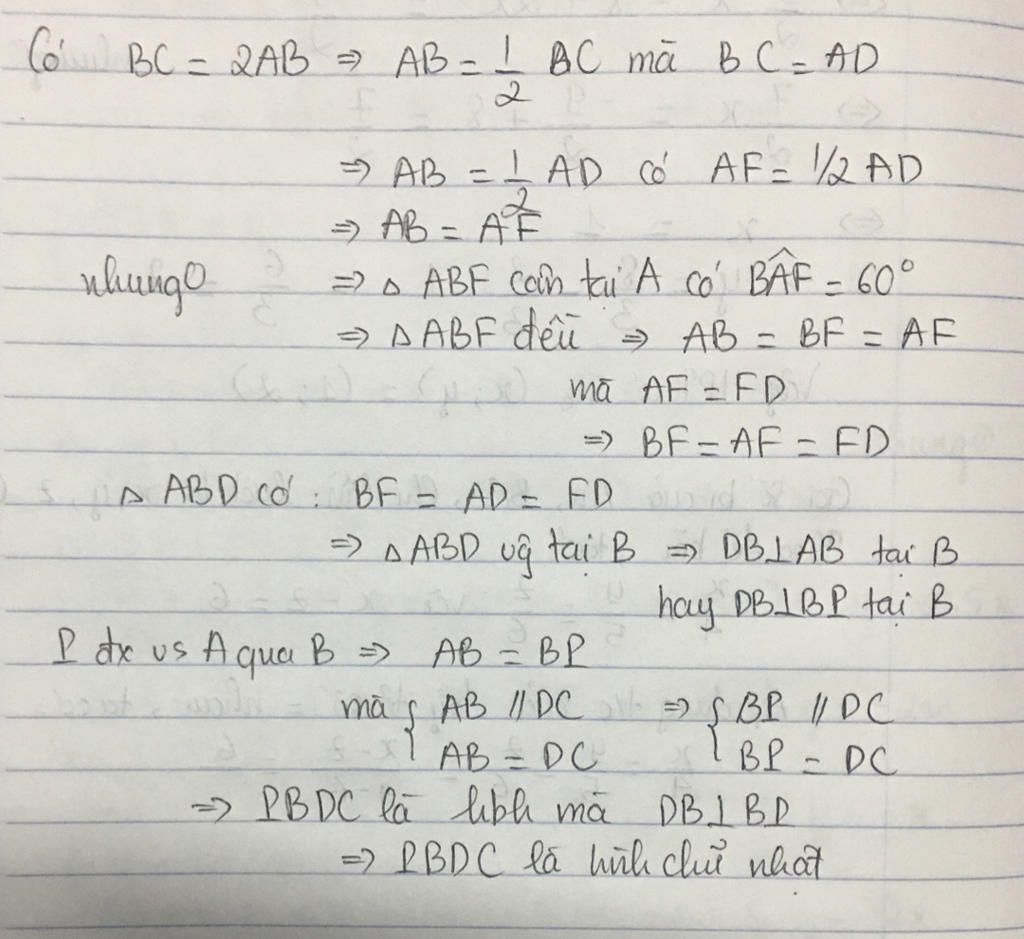 Có BC = 2AB ⇒ AB = 1/2 BC mà BC = AD
⇒ AB = 1/2 AD có AF = 1/2 AD
⇒ AB = AF
nhungo ⇒ △ ABF cân tại A có BÂF = 60°
⇒ △ABF đều ⇒ AB = BF = AF
mà AF = FD
⇒ BF = AF = FD
△ ABD có : BF = AD = FD
⇒ △ABD vg tại B ⇒ DB⊥AB tại B
hay DB⊥BP tại B
P đx vs A qua B ⇒ AB = BP
mà { AB // DC ⇒ { BP // DC
AB = DC BP = DC
⇒ PBDC là hbh mà DB⊥BP
⇒ PBDC là hình chữ nhật